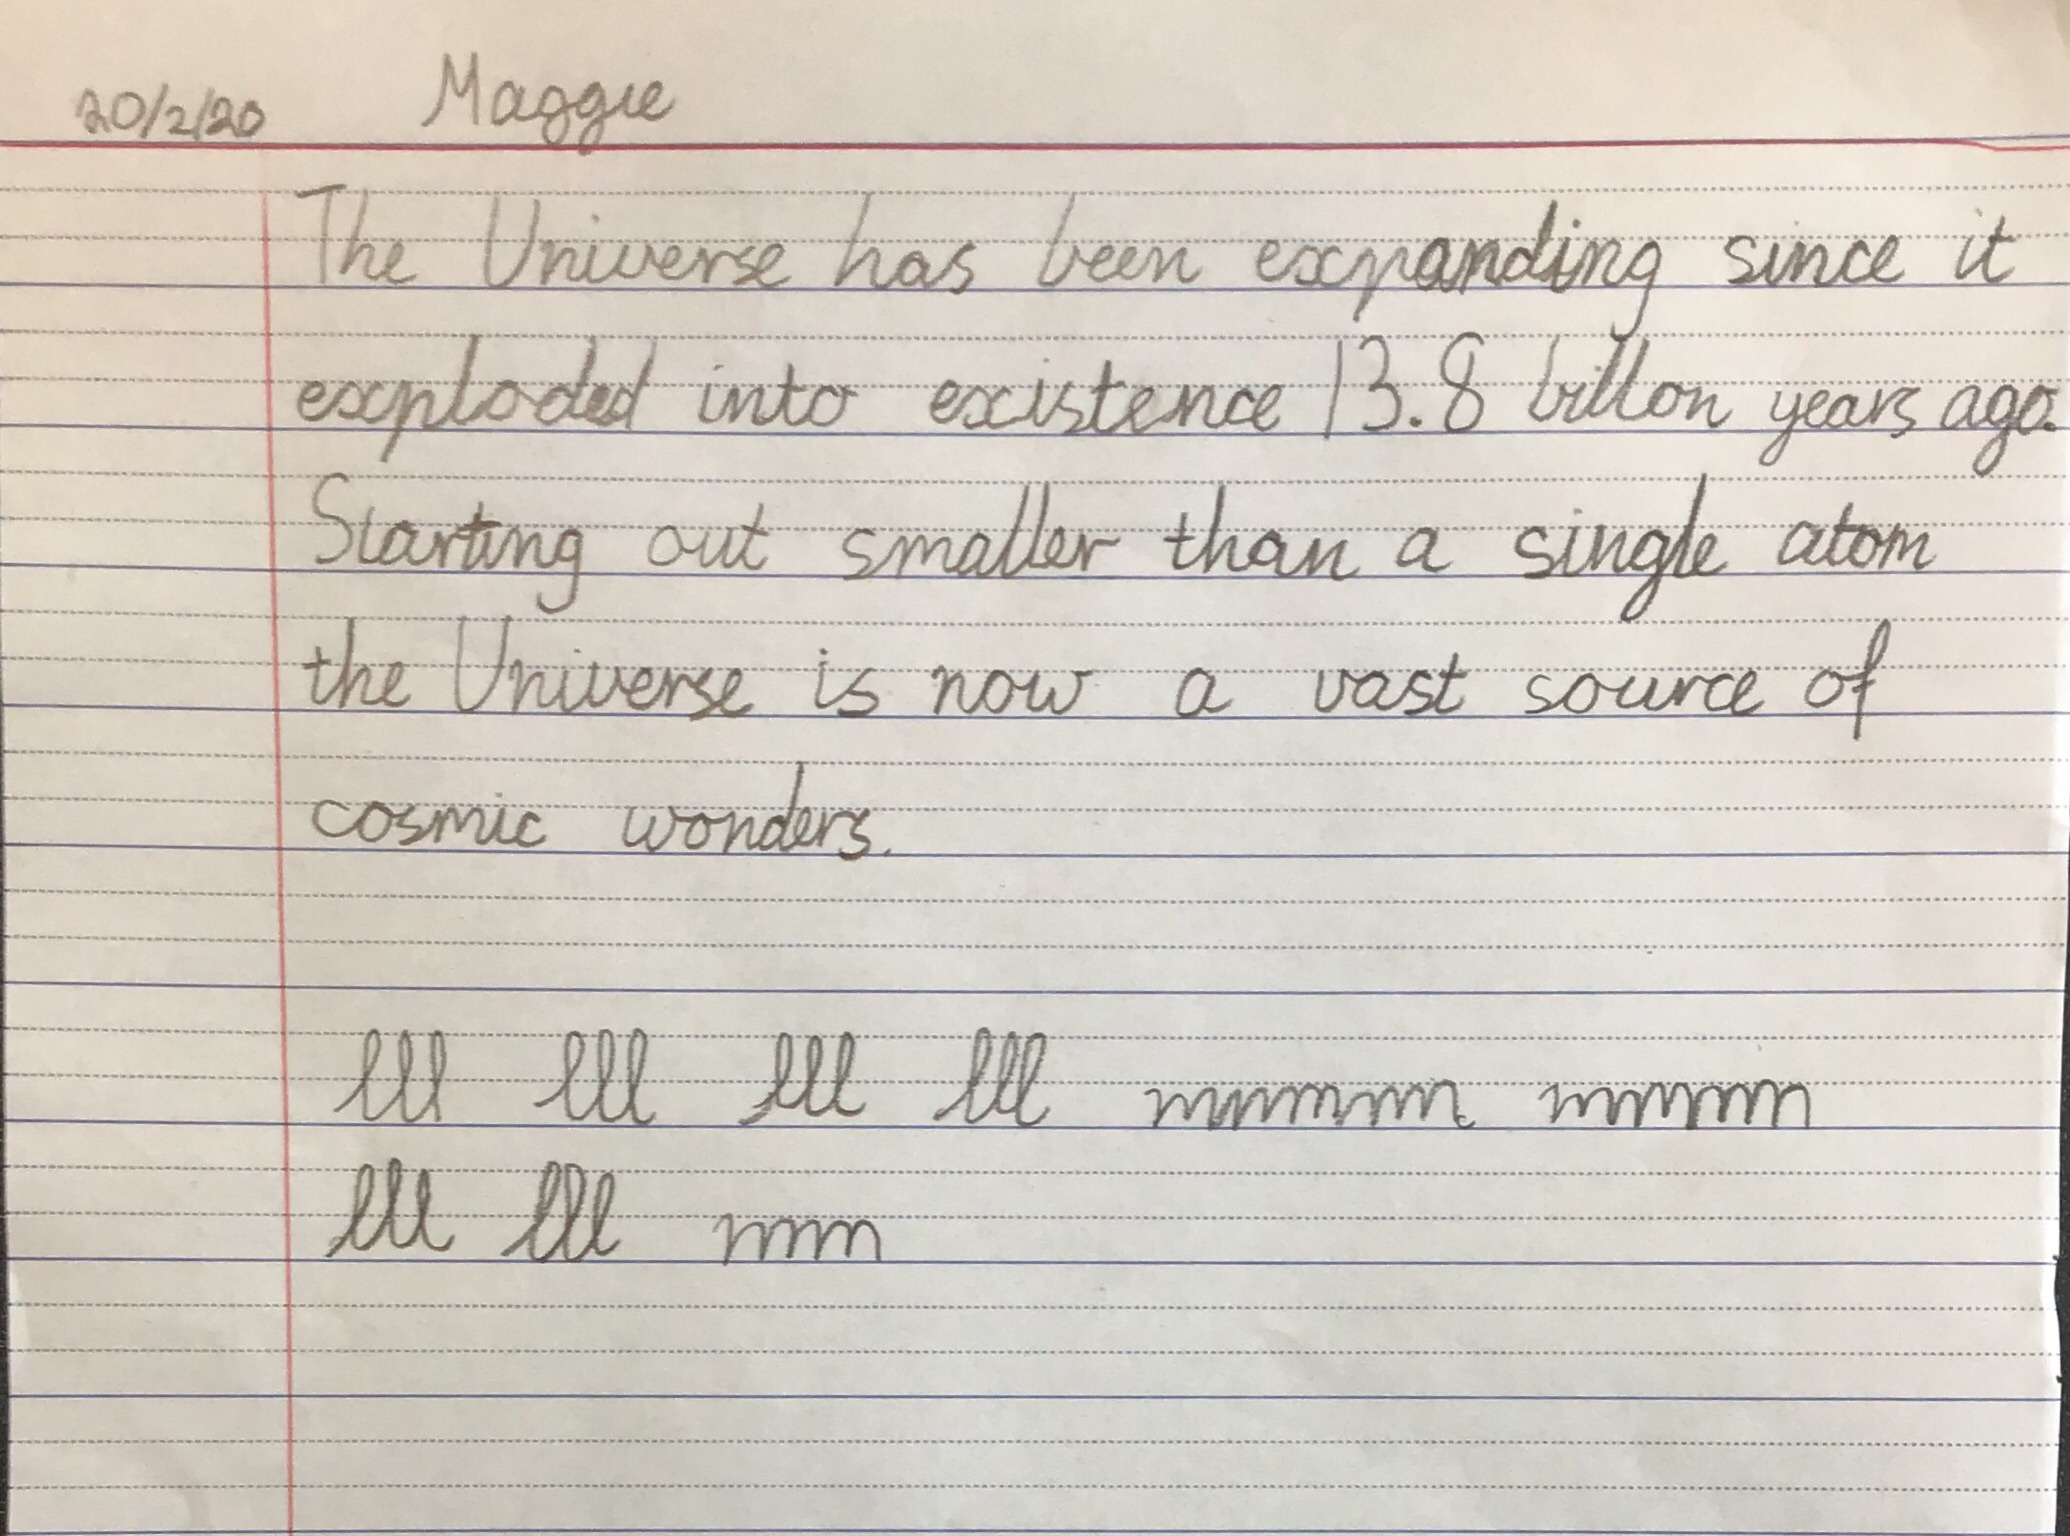 20/2/20 Maggie
The Universe has been expanding since it
exploded into existence 13.8 billon years ago.
Starting out smaller than a single atom
the Universe is now a vast source of
cosmic wonders.
lll lll lll lll mmmmm mmmm
lll lll mmm